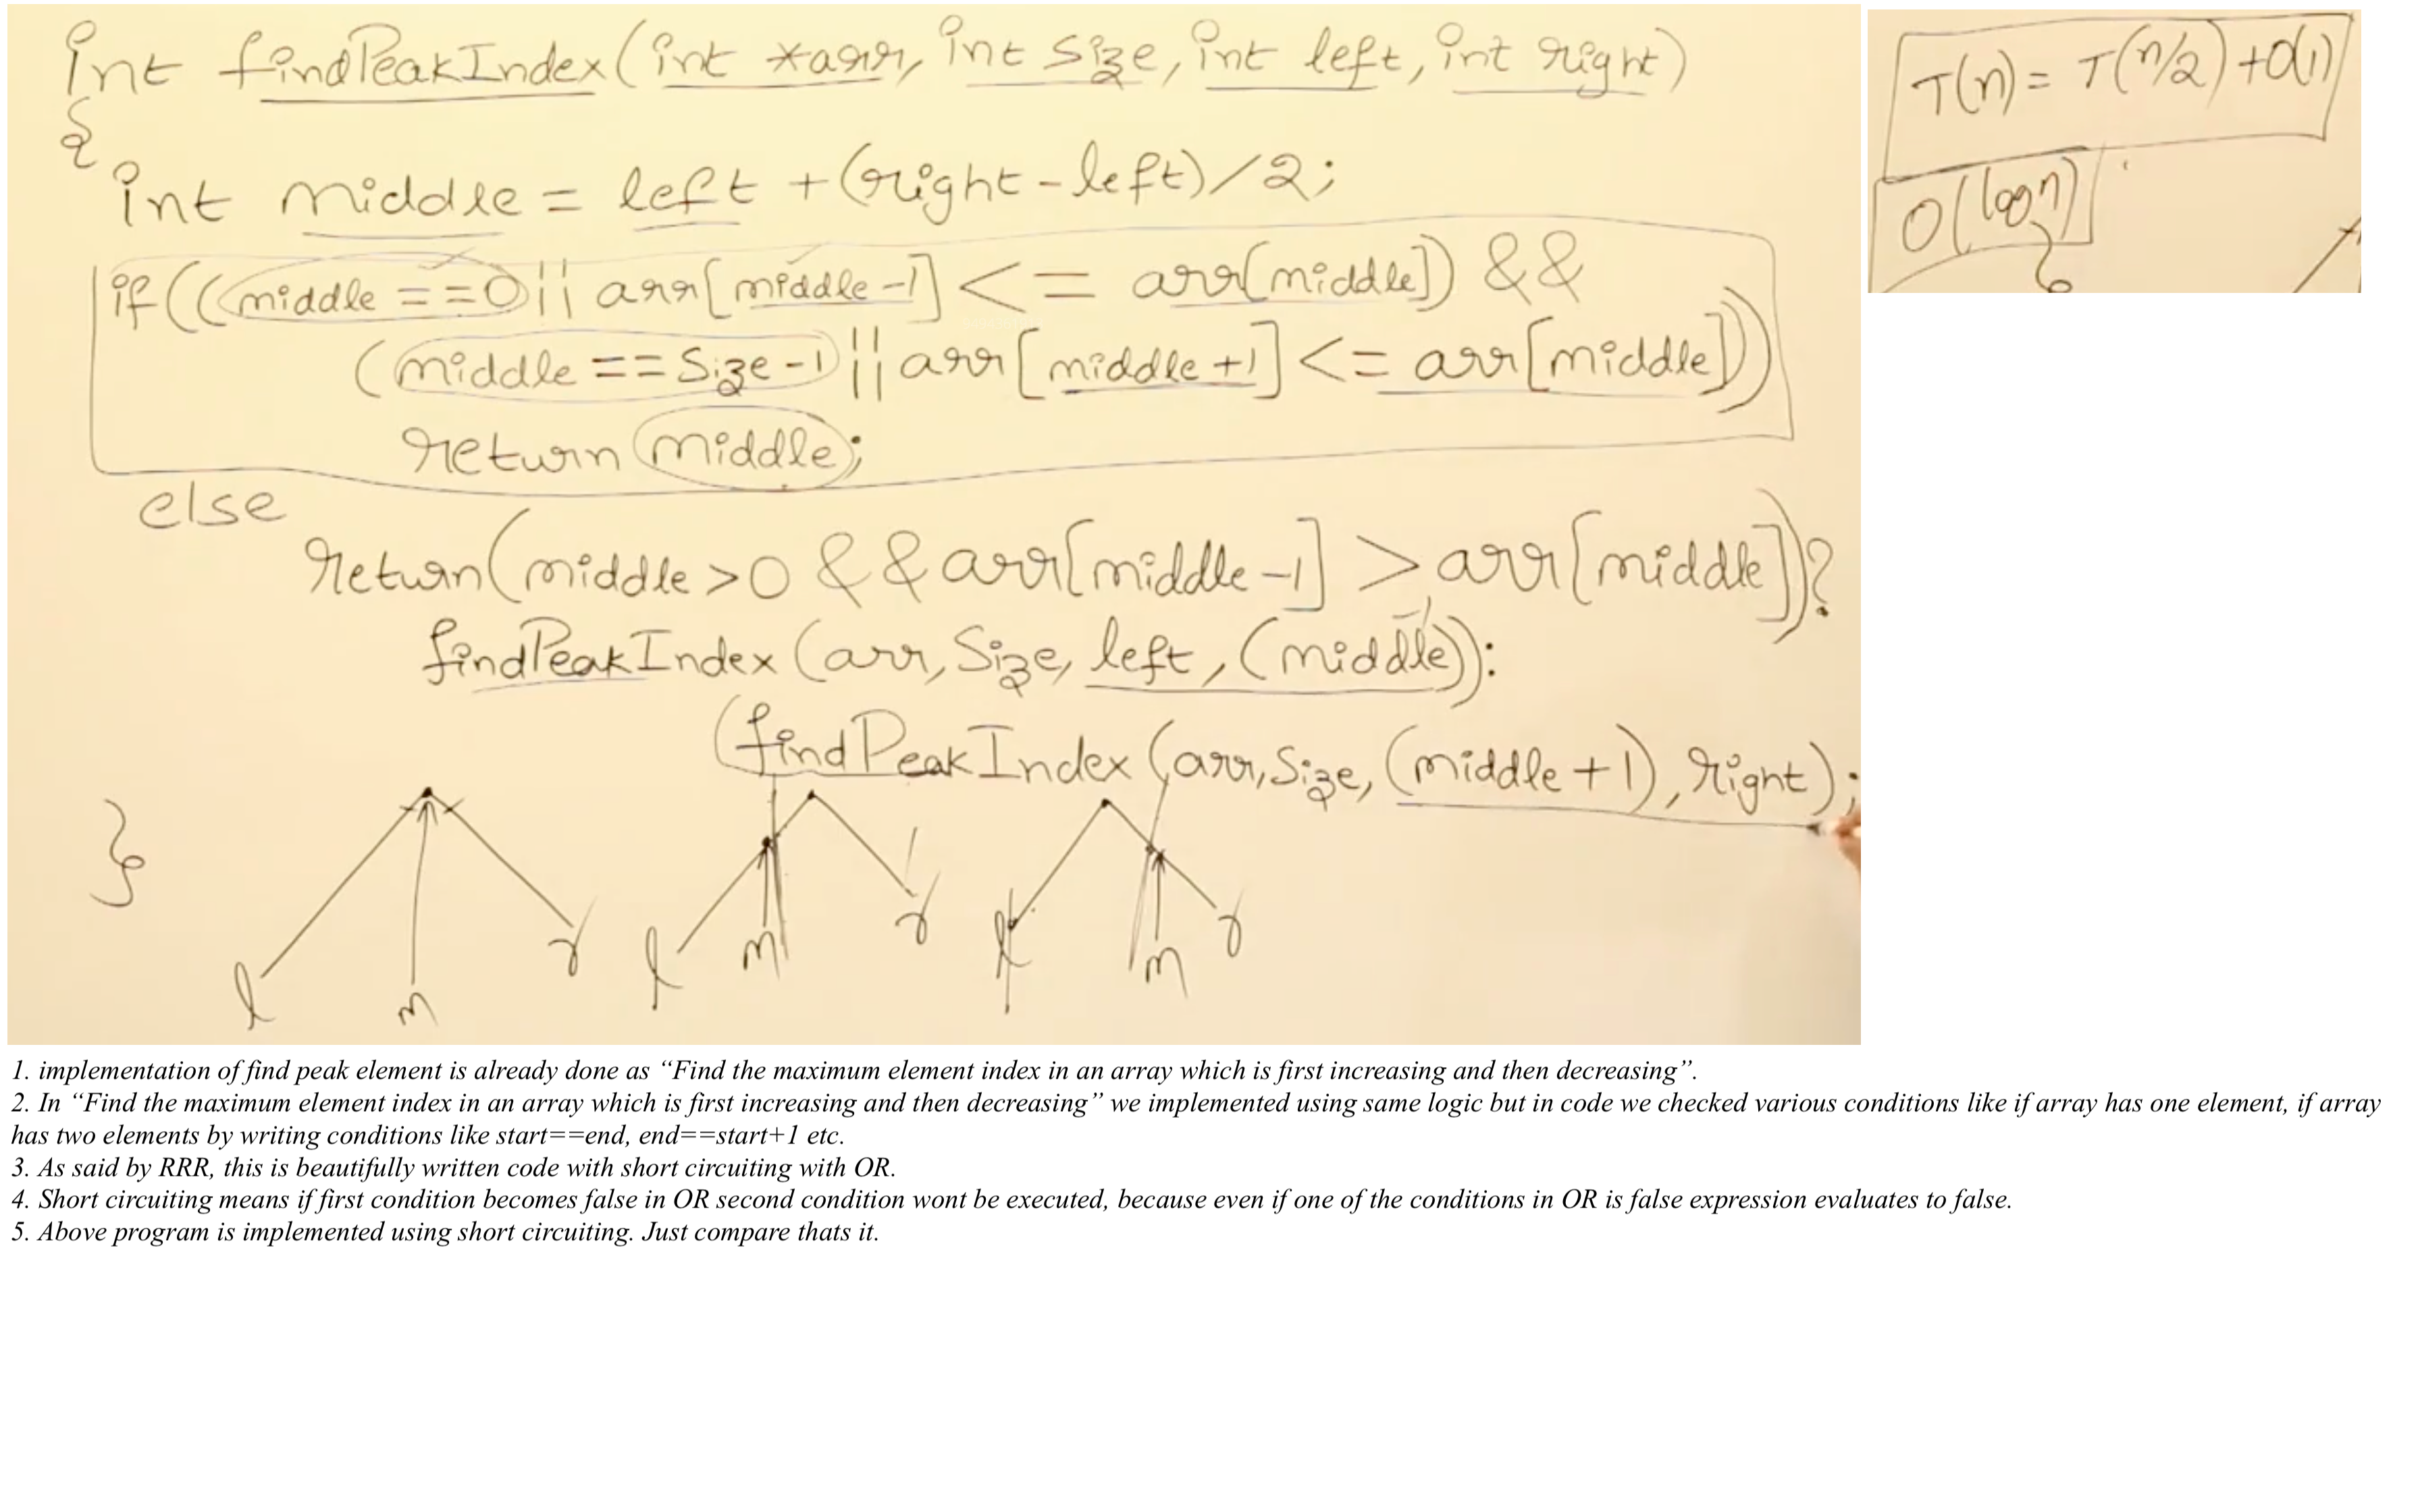 int findPeakIndex(int *arr, int size, int left, int right)
{
int middle = left + (right-left)/2;
if((middle ==0|| arr[middle-1] <= arr[middle]) &&
(middle == size-1 || arr[middle+1] <= arr[middle]))
return middle;
else
return(middle>0 && arr[middle-1] > arr[middle])?
findPeakIndex(arr, size, left, (middle-1)):
(findPeakIndex(arr, size, (middle+1), right);
}
l m r l m r l m r
T(n) = T(n/2)+O(1)
O(logn)
1. implementation of find peak element is already done as “Find the maximum element index in an array which is first increasing and then decreasing”.
2. In “Find the maximum element index in an array which is first increasing and then decreasing” we implemented using same logic but in code we checked various conditions like if array has one element, if array
has two elements by writing conditions like start==end, end==start+1 etc.
3. As said by RRR, this is beautifully written code with short circuiting with OR.
4. Short circuiting means if first condition becomes false in OR second condition wont be executed, because even if one of the conditions in OR is false expression evaluates to false.
5. Above program is implemented using short circuiting. Just compare thats it.